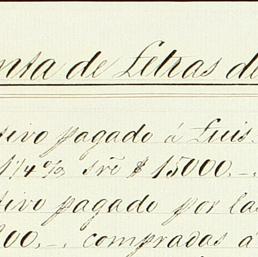 nta de Letras de
tivo pagado á Luis
1 1/4 % sre $ 15000.-.
tivo pagado por las
00,-. compradas á